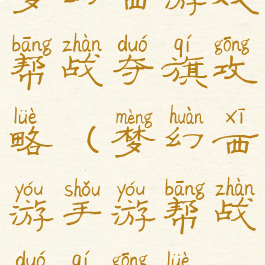 bāng zhàn duó qí gōng
帮战夺旗攻
lüè mèng huàn xī
略(梦幻西
yóu shǒu yóu bāng zhàn
游手游帮战
duó qí gōng lüè